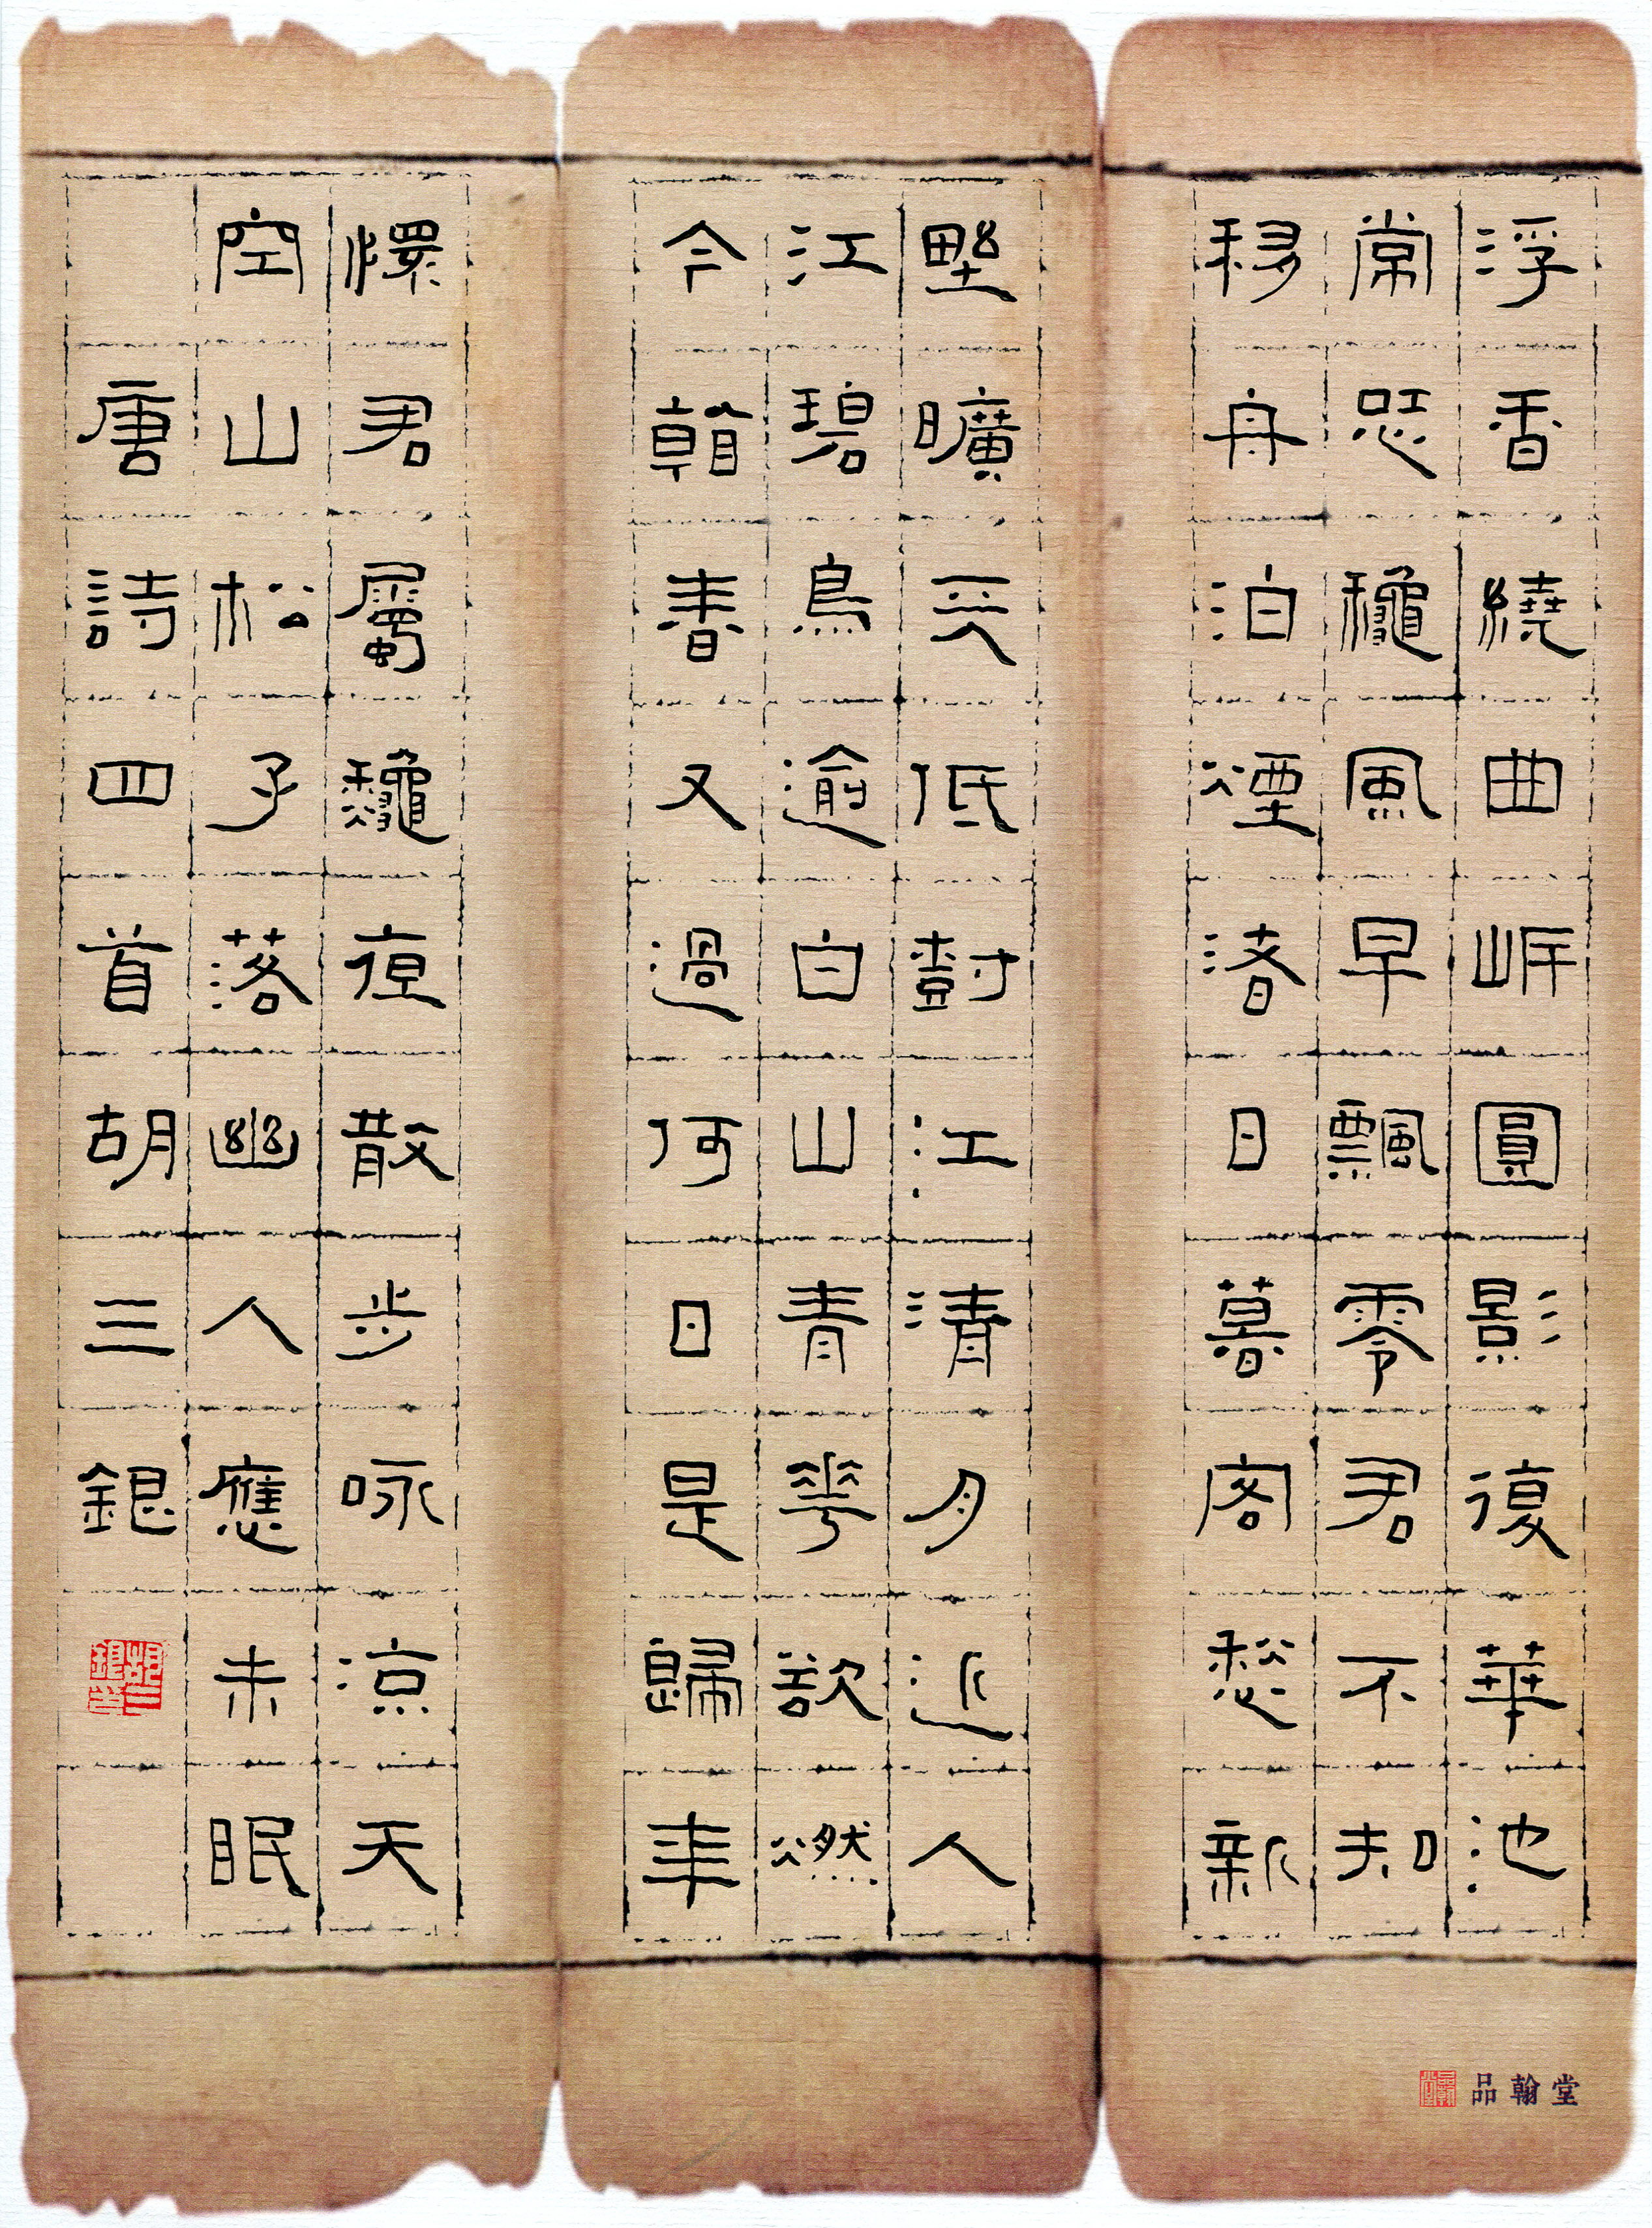 浮香繞曲岸圓影復華池
常恐龝風早飄零君不知
移舟泊煙渚日暮客愁新
野曠天低尌江清月近人
江碧鳥逾白山青華欲燃
今看春又過何日是歸年
懷君屬龝夜散步咏涼天
空山松子落幽人應未眠
唐詩四首胡三銀
胡三銀印
品翰堂